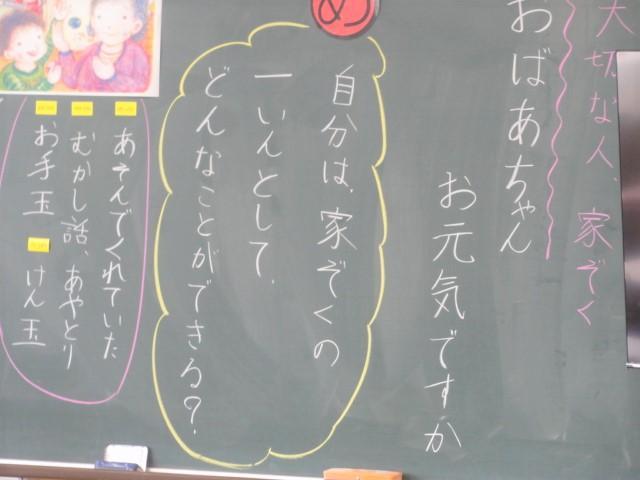 大切な人、家ぞく
おばあちゃん
お元気ですか
め
自分は、家ぞくの
一いんとして、
どんなことができる？
あそんでくれていた
むかし話、あやとり
お手玉 けん玉